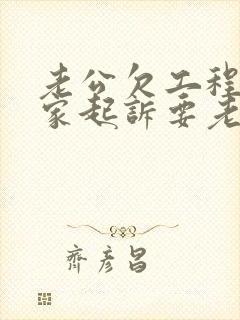 老公欠工程
家起訴要老
齊彦昌